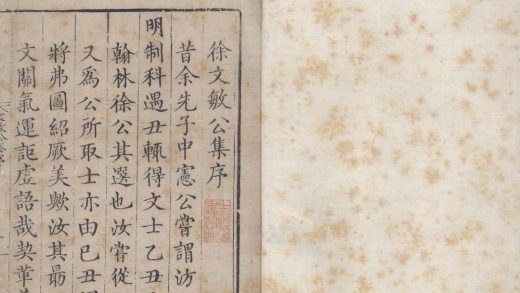 徐文敏公集序
昔余先子中憲公嘗謂汸
明制科遇丑輒得文士乙丑
翰林徐公其選也汝嘗從
又爲公所取士亦由己丑
將弗圖紹厥美歟汝其最
文關氣運詎虛語哉契革